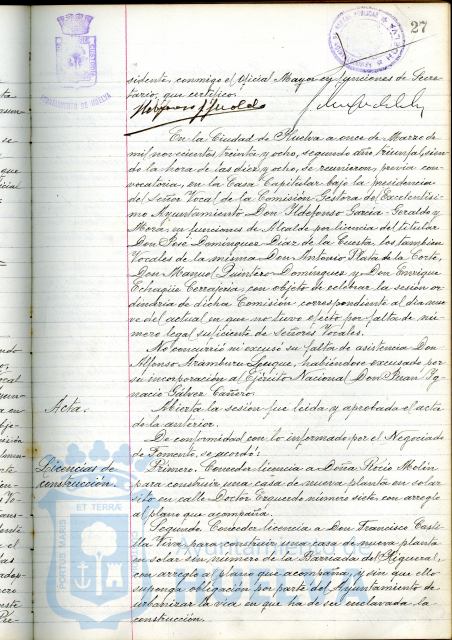 27
AYUNTAMIENTO DE HUELVA
sidente, conmigo el Oficial Mayor en funciones de Secre-
tario, que certifico.
En la Ciudad de Huelva a once de Marzo de
mil novecientos treinta y ocho, segundo año triunfal, sien-
do la hora de las diez y ocho, se reunieron, previa con-
vocatoria, en la Casa Capitular bajo la presidencia
del Señor Vocal de la Comisión Gestora del Excelentísi-
mo Ayuntamiento Don Ildefonso Garcia-Geraldo y
Mora, en funciones de Alcalde por licencia del titular
Don José Dominguez-Diaz de la Cuesta, los tambien
Vocales de la misma Don Antonio Plata de la Corte,
Don Manuel Quintero Dominguez y Don Enrique
Echagüe Correjeria, con objeto de celebrar la sesión or-
dinaria de dicha Comisión, correspondiente al dia nue-
ve del actual en que no tuvo efecto por falta de nú-
mero legal suficiente de Señores Vocales.
No concurrió ni excusó su falta de asistencia Don
Alfonso Aramburu Luque, habiéndose excusado por
su incorporación al Ejército Nacional Don Juan Yg-
nacio Gálvez Cañero.
Acta.
Abierta la sesión fue leida y aprobada el acta
de la anterior.
De conformidad con lo informado por el Negociado
de Fomento, se acordó:
Licencias de
construcción.
Primero. Conceder licencia a Doña Rocio Molin
para construir una casa de nueva planta en solar
sito en calle Doctor Esquerdo número siete con arreglo
al plano que acompaña.
Segundo. Conceder licencia a Don Francisco Casti-
lla Viva para construir una casa de nueva planta
en solar sin número de la Barriada del Higueral,
con arreglo al plano que acompaña, y sin que ello
suponga obligación por parte del Ayuntamiento de
urbanizar la via en que ha de ser enclavada la
construcción.
PORTUS MARIS ET TERRÆ
Ayuntamiento de